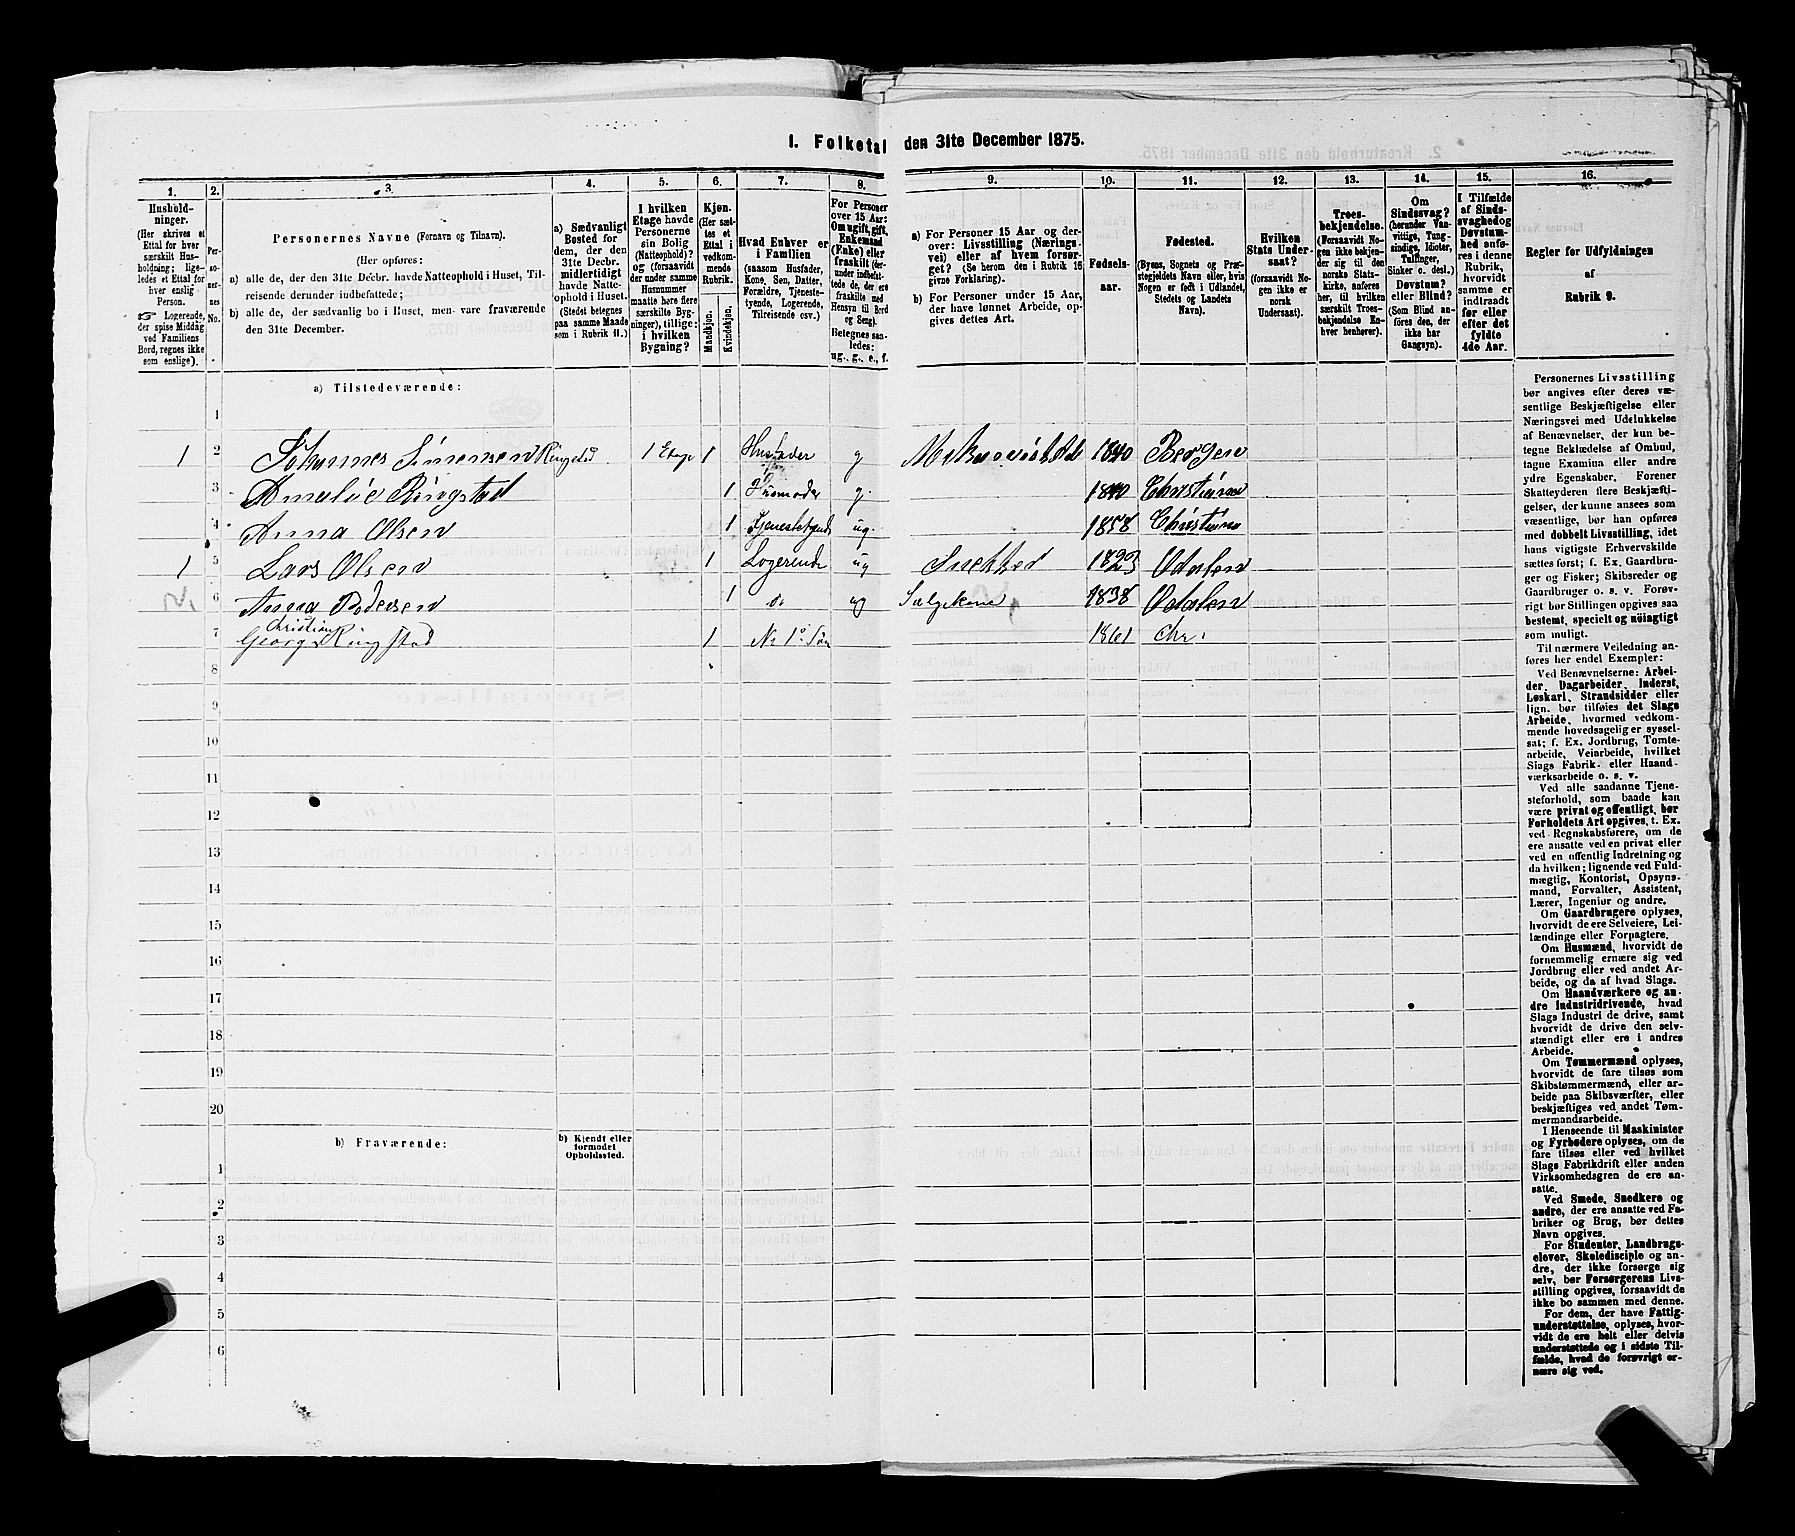 I. Folketal den 31te December 1875.
1. 2. 3. 4. 5. 6. 7. 8. 9. 10. 11. 12. 13. 14. 15. 16.
Hushold-
ninger.
(Her skrives et
Ettal for hver
særskilt Hus-
holdning; lige-
ledes et Ettal for
hver enslig
Person.
☞ Logerende,
der spise Middag
ved Familiens
Bord, regnes ikke
som enslige).
Per-
so-
ner-
nes
No.
Personernes Navne (Fornavn og Tilnavn).
(Her opføres:
a) alle de, der den 31te Decbr. havde Natteophold i Huset, Til-
reisende derunder indbefattede;
b) alle de, der sædvanlig bo i Huset, men vare fraværende
den 31te December.
a) Sædvanligt
Bosted for
dem, der den
31te Decbr.
midlertidigt
havde Natte-
ophold i Huset.
(Stedet betegnes
paa samme Maade
som i Rubrik 11.)
I hvilken
Etage havde
Personerne
sin Bolig
(Natteophold)?
og (forsaavidt
der under samme
Husnummer
maatte høre flere
særskilte Byg-
ninger), tillige:
i hvilken
Bygning?
Kjøn.
(Her sæt-
tes et
Ettal i
vedkom-
mende
Rubrik.
Mandkjøn.
Kvindekjøn.
Hvad Enhver er
i Familien
(saasom Husfader,
Kone, Søn, Datter,
Forældre, Tjeneste-
tyende, Logerende,
Tilreisende osv.)
For Personer
over 15 Aar:
Om ugift, gift,
Enkemand
(Enke) eller
fraskilt (der-
under indbefat-
tede de, der ere
fraskilte med
Hensyn til Bord
og Seng).
Betegnes saa-
ledes:
ug., g., e., f.
a) For Personer 15 Aar og der-
over: Livsstilling (Nærings-
vei) eller af hvem forsør-
get? (Se herom den i Rubrik 16
givne Forklaring).
b) For Personer under 15 Aar,
der have lønnet Arbeide, op-
gives dettes Art.
Fødsels-
aar.
Fødested.
(Byens, Sognets og Præ-
stegjeldets Navn eller, hvis
Nogen er født i Udlandet,
Stedets og Landets
Navn).
Hvilken
Stats Under-
saat?
(forsaavidt No-
gen ikke er
norsk
Undersaat).
Troes-
bekjendelse.
(Forsaavidt No-
gen ikke bekjen-
der sig til den
norske Stats-
kirke, anføres
her, til hvilken
særskilt Troes-
bekjendelse En-
hver henhører).
Om
Sindssvag?
(herunder Van-
vittige, Tung-
sindige, Idioter,
Tullinger,
Sinker o. desl.)
Døvstum?
eller Blind?
(Som Blind an-
føres den, der
ikke har
Gangsyn).
I Tilfælde
af Sinds-
svaghed og
Døvstum-
hed anfø-
res i denne
Rubrik,
hvorvidt
samme er
indtraadt
før eller
efter det
fyldte
4de Aar.
Regler for Udfyldningen
af
Rubrik 9.
a) Tilstedeværende:
1
1 2 Johannes Simensen Ringstad 1 Etage 1 Husfader g 1840 Bergen
3 Amalie Ringstad 1 Husmoder g. 1840 Christiania
4 Anna Olsen 1 Tjenestetyende ug. 1858 Christiania
1 5 Lars Olsen 1 Logerende ug Snekker 1823 Odalen
6 Anna Pedersen 1 do ug Sælgekone 1838 Odalen
Christian
7 Georg Ringstad 1 No 1s Søn 1861 Chr.
8
9
10
11
12
13
14
15
16
17
18
19
20
b) Fraværende:
b) Kjendt eller
formodet
Opholdssted.
1
2
3
4
5
6
Personernes Livsstilling
bør angives efter deres væ-
sentlige Beskjæftigelse eller
Næringsvei med Udelukkelse
af Benævnelser, der kun be-
tegne Beklædelse af Ombud,
tagne Examina eller andre
ydre Egenskaber. Forener
Skatteyderen flere Beskjæfti-
gelser, der kunne ansees som
væsentlige, bør han opføres
med dobbelt Livsstilling, idet
hans vigtigste Erhvervskilde
sættes først; f. Ex. Gaardbru-
ger og Fisker; Skibsreder og
Gaardbruger o. s. v. Forøv-
rigt bør Stillingen opgives saa
bestemt, specielt og nøiagtigt
som muligt.
Til nærmere Veiledning an-
føres her endel Exempler:
Ved Benævnelserne: Arbei-
der, Dagarbeider, Inderst,
Løskarl, Strandsidder eller
lign. bør tilføies det Slags
Arbeide, hvormed vedkom-
mende hovedsagelig er syssel-
sat; f. Ex. Jordbrug, Tomte-
arbeide, Veiarbeide, hvilket
Slags Fabrik- eller Haand-
værksarbeide o. s. v.
Ved alle saadanne Tjene-
steforhold, som baade kan
være privat og offentligt, bør
Forholdets Art opgives, t. Ex.
ved Regnskabsførere, om de
ere ansatte ved en privat eller
ved en offentlig Indretning og
da hvilken; lignende ved Fuld-
mægtig, Kontorist, Opsyns-
mand, Forvalter, Assistent,
Lærer, Ingeniør og andre.
Om Gaardbrugere oplyses,
hvorvidt de ere Selveiere, Lei-
lændinge eller Forpagtere.
Om Husmænd, hvorvidt de
fornemmelig ernære sig ved
Jordbrug eller ved andet Ar-
beide, og da af hvad Slags.
Om Haandværkere og an-
dre Industridrivende, hvad
Slags Industri de drive, samt
hvorvidt de drive den selv-
stændigt eller ere i andres
Arbeide.
Om Tømmermænd oplyses,
hvorvidt de fare tilsøs som
Skibstømmermænd, eller ar-
beide paa Skibsværfter, eller
beskjæftiges ved andet Tøm-
mermandsarbeide.
I Henseende til Maskinister
og Fyrbødere oplyses, om de
fare tilsøs eller ved hvilket
Slags Fabrikdrift eller anden
Virksomhedsgren de ere an-
satte.
Ved Smede, Snedkere og
andre, der ere ansatte ved Fa-
briker og Brug, bør dettes
Navn opgives.
For Studenter, Landbrugs-
elever, Skoledisciple og an-
dre, der ikke forsørge sig
selv, bør Forsørgerens Livs-
stilling opgives, forsaavidt de
ikke bo sammen med denne.
For dem, der have Fattig-
understøttelse, oplyses, hvor-
vidt de ere helt eller delvis
understøttede og i sidste Til-
fælde, hvad de forøvrigt er-
nære sig ved.